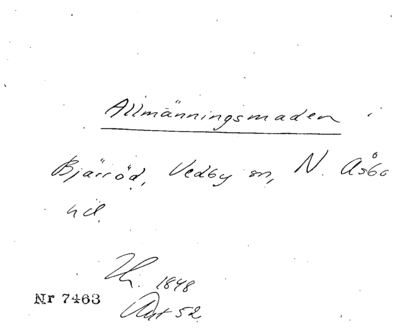 Allmänningsmaden i
Bjärröd, Vedby sn, N. Åsbo
hd.
1848
Nr 7463
Akt 52